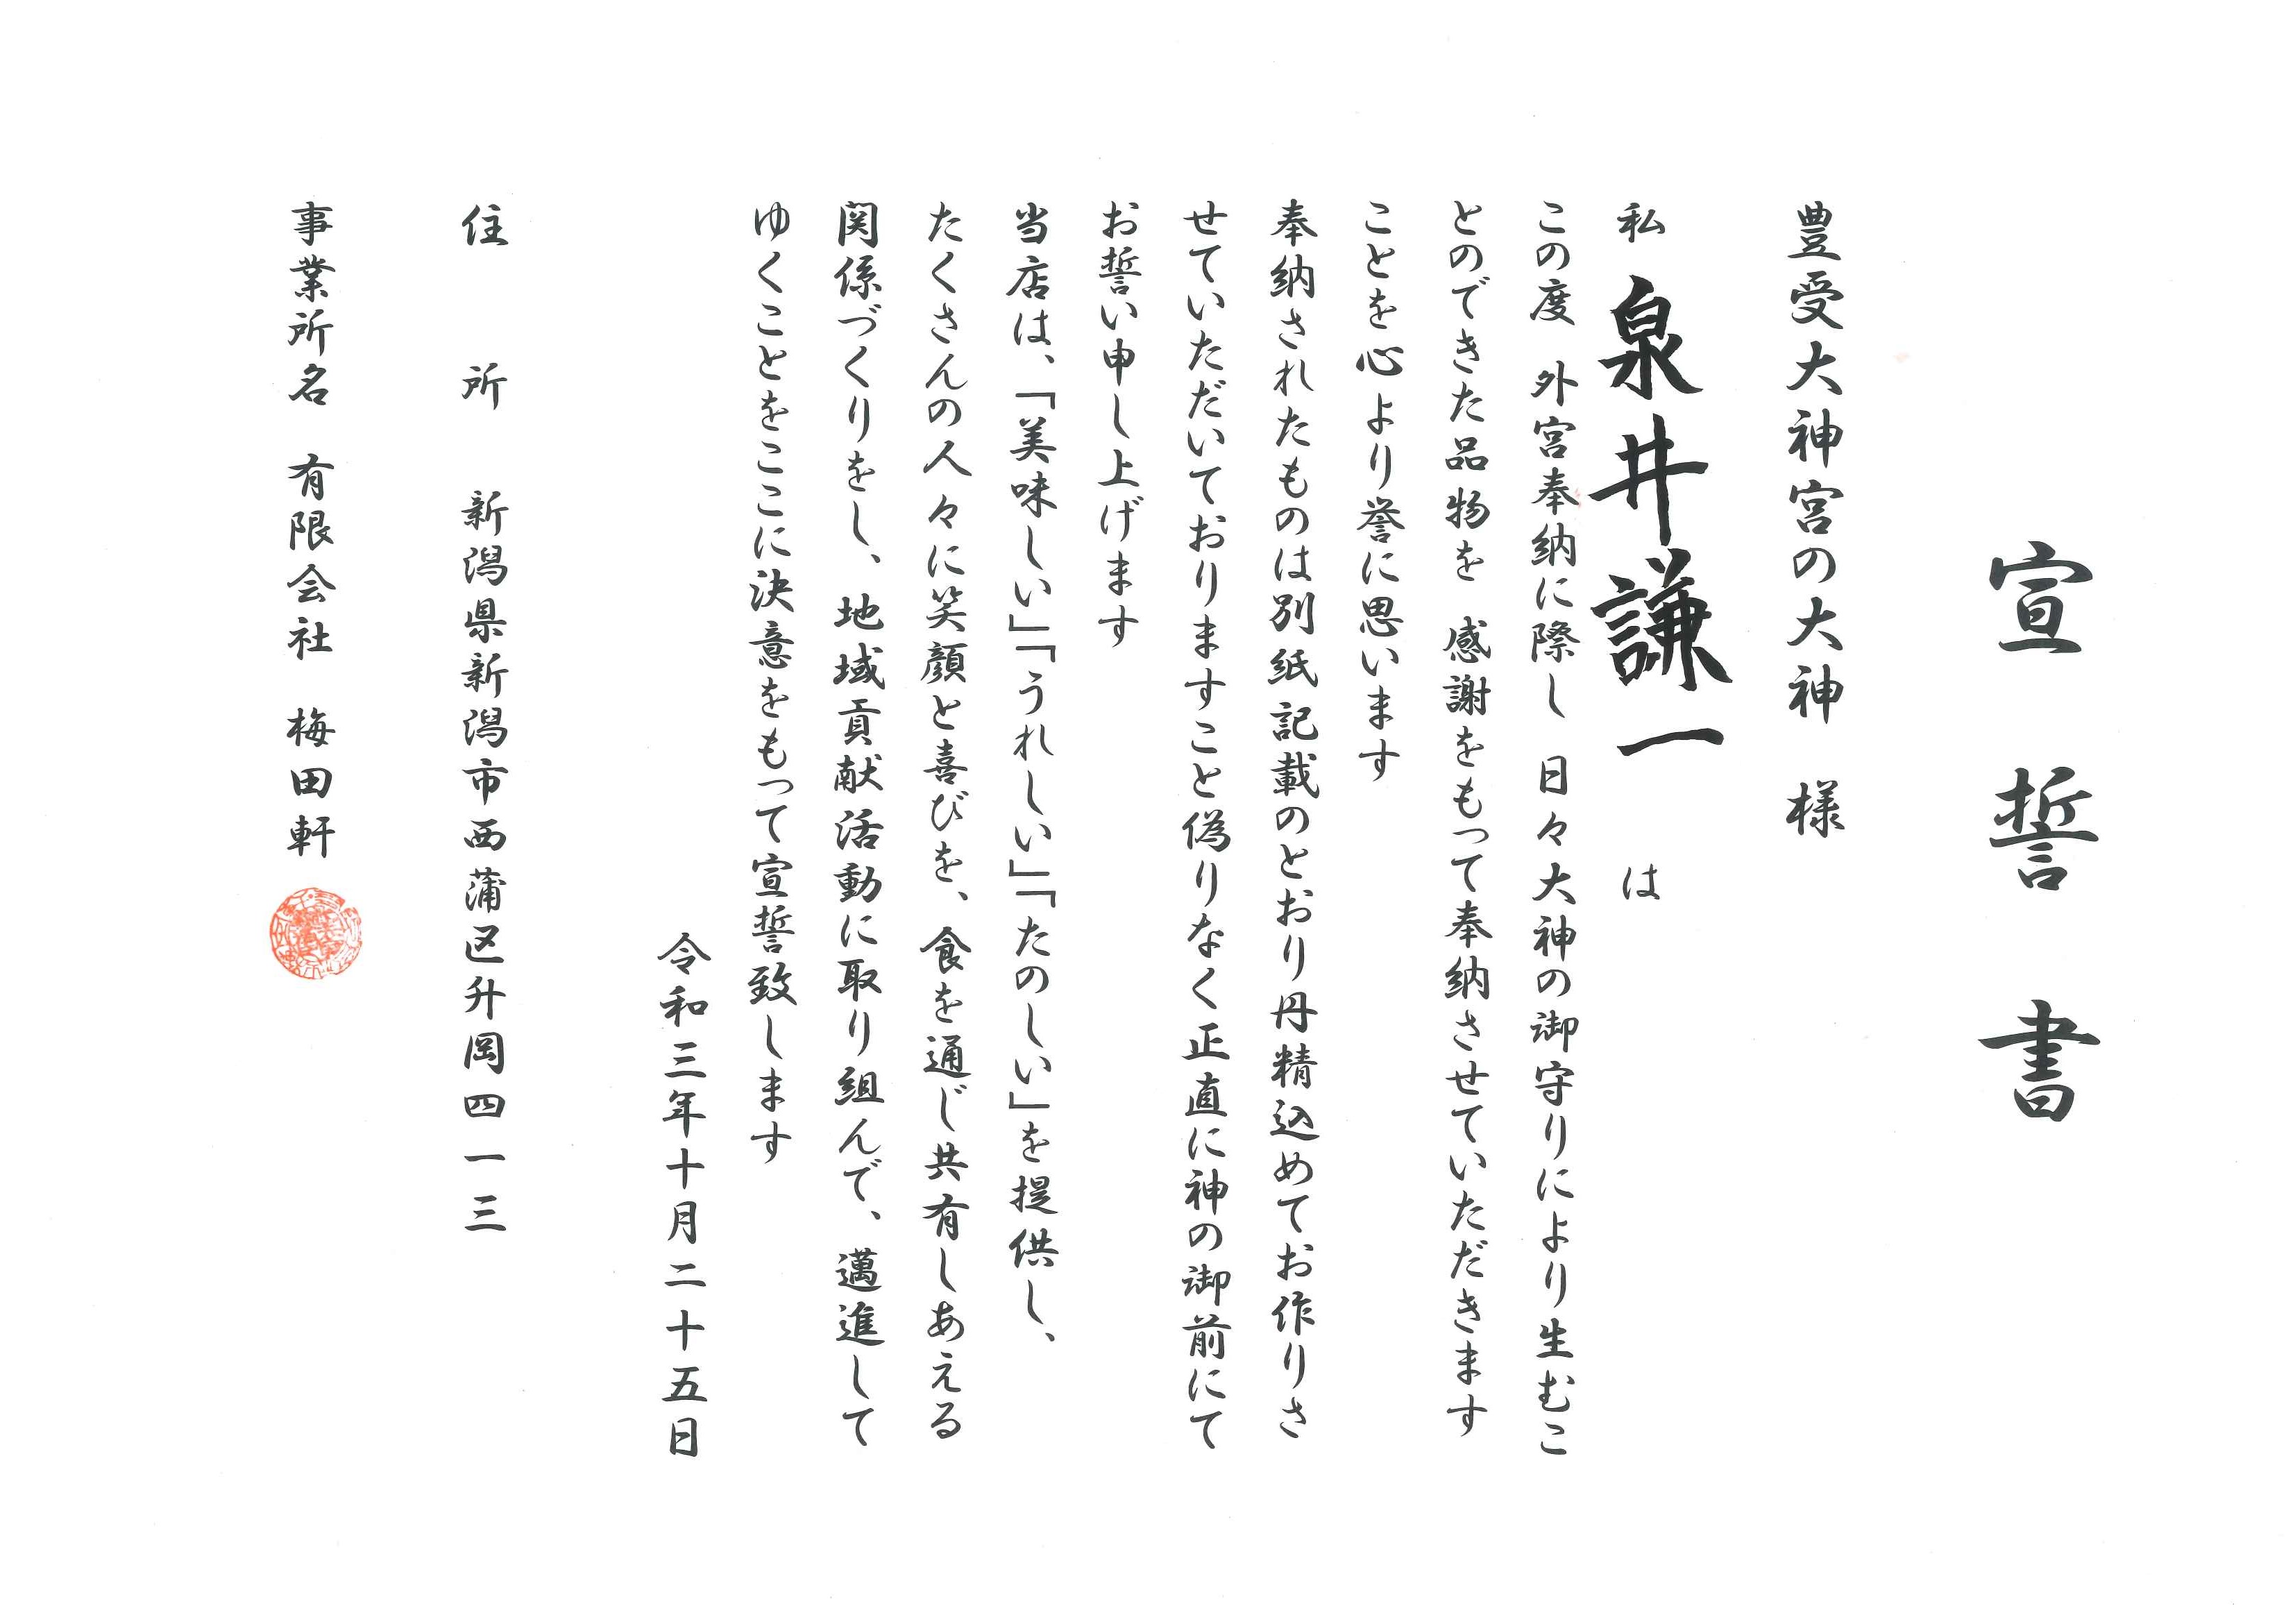 宣誓書
豊受大神宮の大神　様
私　泉井謙一　は
この度　外宮奉納に際し　日々大神の御守りにより生むこ
とのできた品物を　感謝をもって奉納させていただきます
ことを心より誉に思います
奉納されたものは別紙記載のとおり丹精込めてお作りさ
せていただいておりますこと偽りなく正直に神の御前にて
お誓い申し上げます
当店は、「美味しい」「うれしい」「たのしい」を提供し、
たくさんの人々に笑顔と喜びを、食を通じ共有しあえる
関係づくりをし、地域貢献活動に取り組んで、邁進して
ゆくことをここに決意をもって宣誓致します
令和三年十月二十五日
住　所　新潟県新潟市西蒲区升岡四一三
事業所名　有限会社　梅田軒